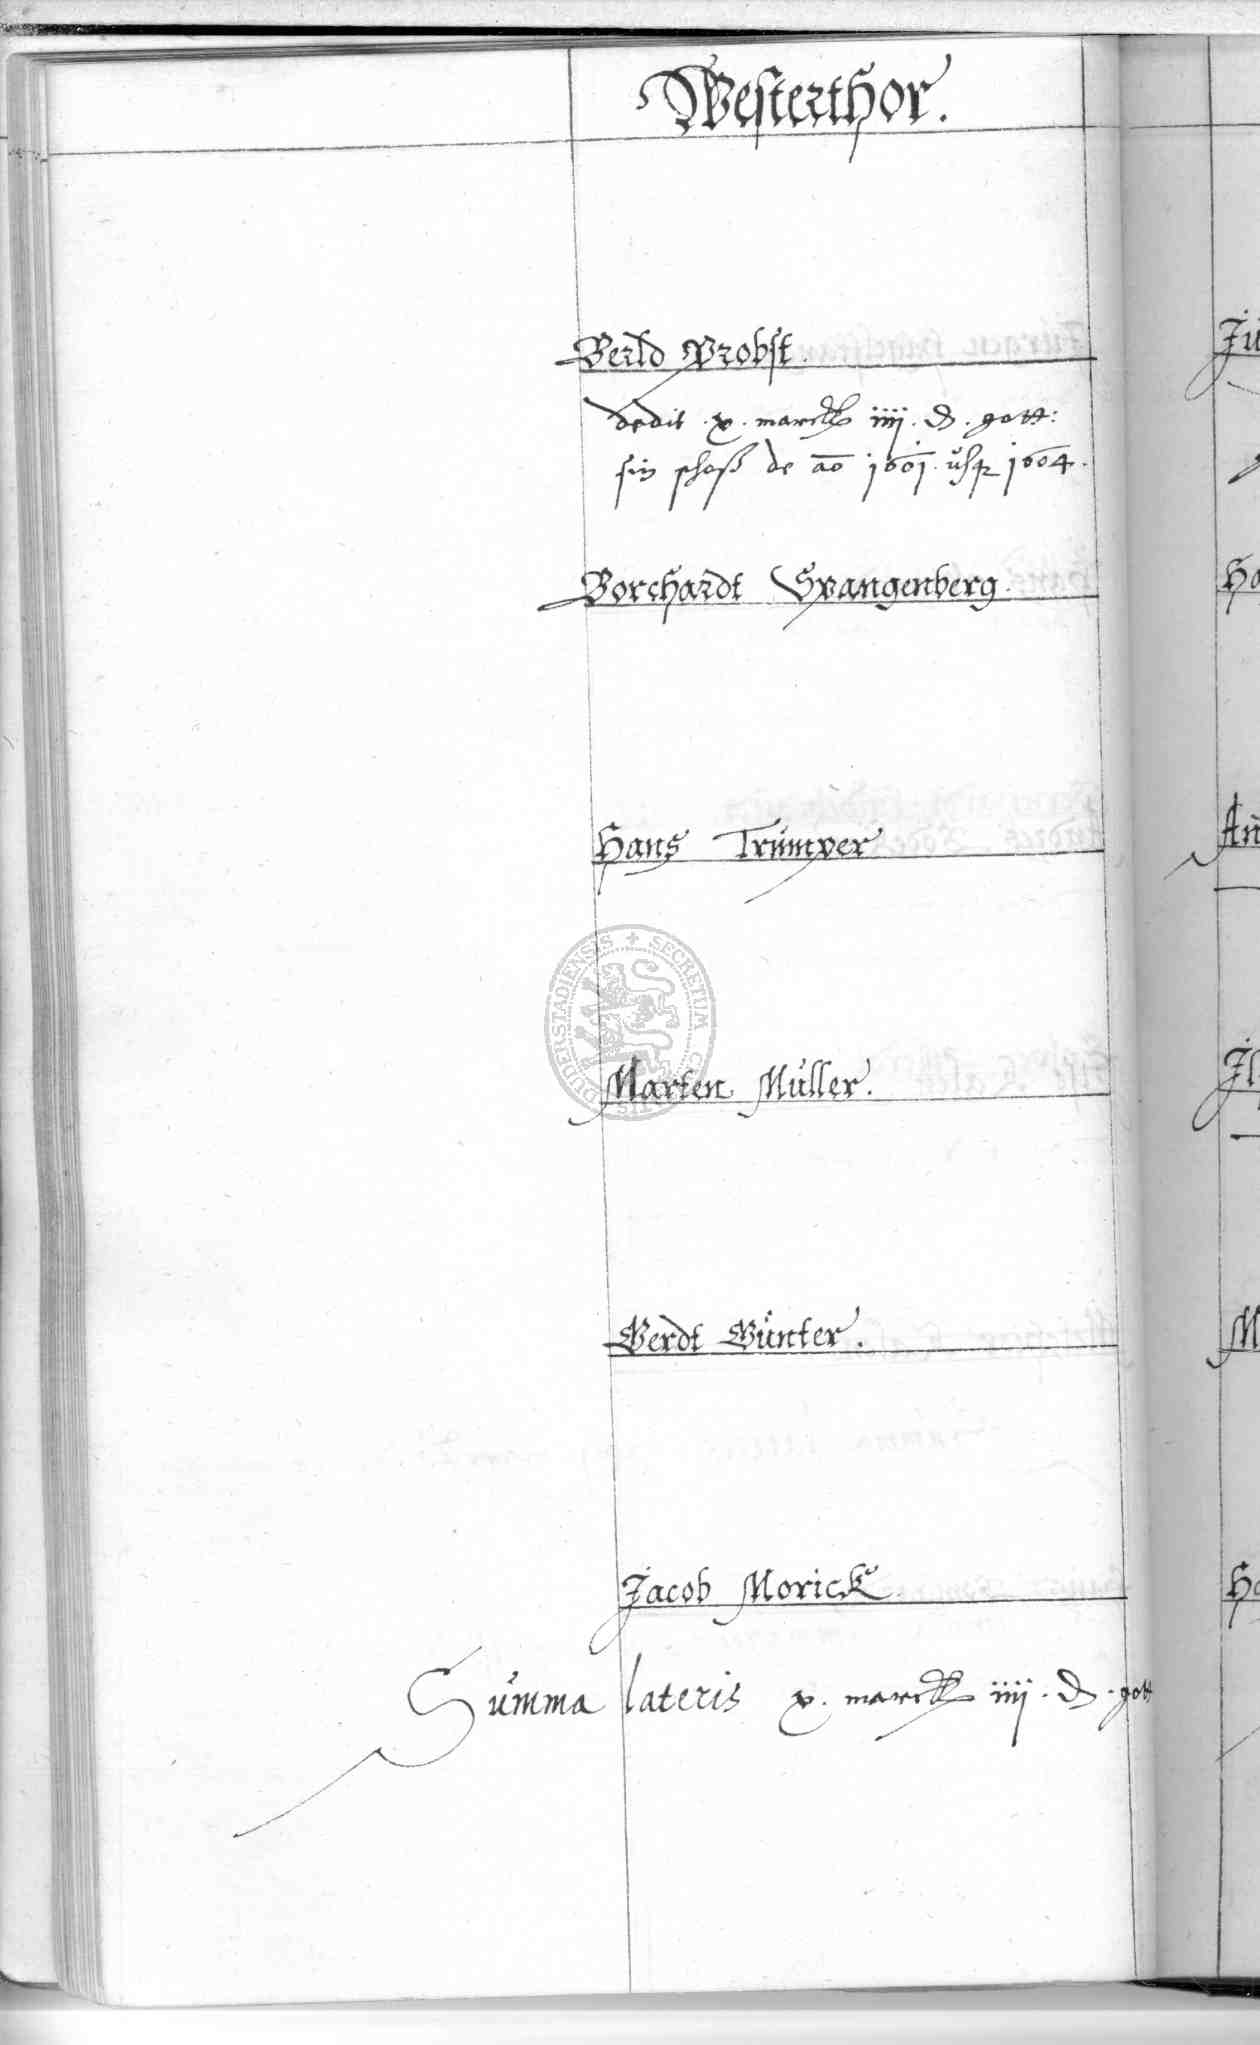 Westerthor.
Berld Probst.
dedit . x . marck iiij . d . gott:
sin schoß de ao 1601 . usq 1604 .
Borchardt Spangenberg.
Hans Trümper
Marten Müller.
Gerdt Günter.
Jacob Morick
Summa lateris x . marck iiij . d . gott
SECRETUM
DUDERSTADIENSIS